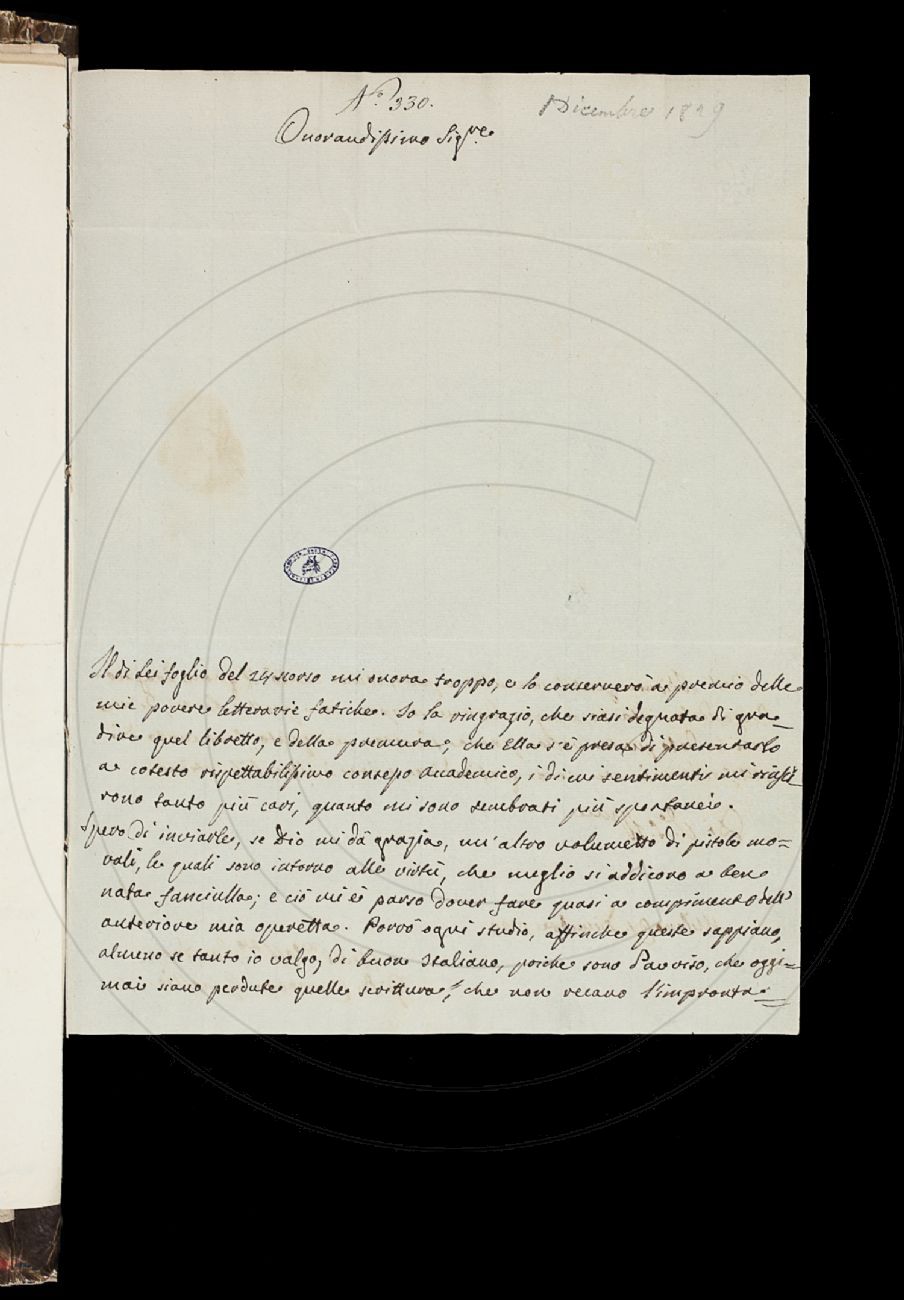 N.° 330.
Dicembre 1829
Onorandissimo Sig.re
Il di Lei foglio del 24 scorso mi onora troppo, e lo conserverò a premio delle
mie povere letterarie fatiche. Io la ringrazio, che siasi degnata di gra-
dire quel libretto, e della premura, che Ella s'è presa di presentarlo
a cotesto rispettabilissimo consesso accademico, i di cui sentimenti mi
rono tanto più cari, quanto mi sono sembrati più spontanei.
Spero di inviarle, se Dio mi dà grazia, un'altro volumetto di pistole mo=
rali, le quali sono intorno alle virtù, che meglio si addicono a ben
nata fanciulla; e ciò mi è parso dover fare quasi a compimento dell'
anteriore mia operetta. Porrò ogni studio, affinche queste sappiano,
almeno se tanto io valgo, di buon Italiano, poiche sono d'avviso, che oggi=
mai siano perdute quelle scritture, che non recano l'impronta